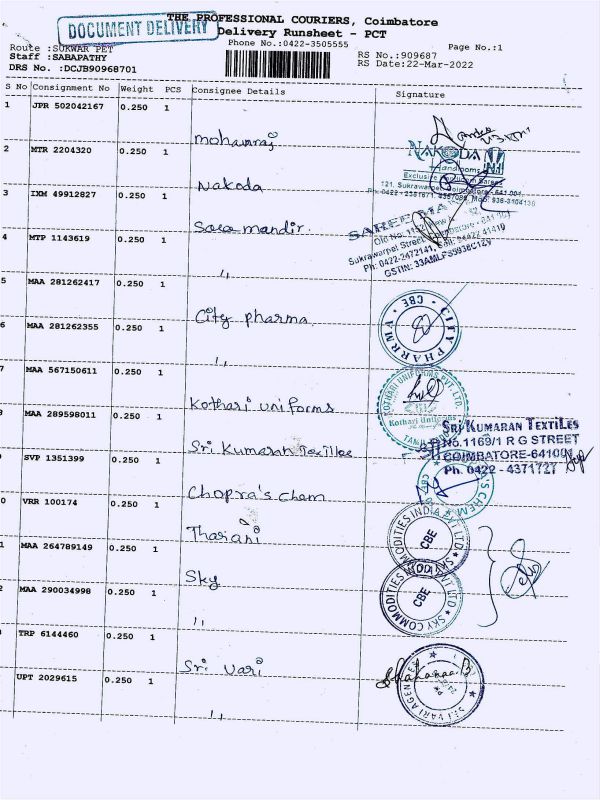 THE PROFESSIONAL COURIERS, Coimbatore
DOCUMENT DELIVERY
Delivery Runsheet - PCT
Phone No.:0422-3505555
Page No.:1
Route :SUKWAR PET
RS No.:909687
Staff :SABAPATHY
RS Date:22-Mar-2022
DRS No. :DCJB90968701
S No Consignment No Weight PCS Consignee Details Signature
1 JPR 502042167 0.250 1
mohanraj
2 MTR 2204320 0.250 1
Nakoda
NAKODA
Handlooms
Exclusive
121, Sukrawarpet, Coimbatore - 641 001.
3 IXM 49912827 0.250 1
mandir.
SAREE
4 MTP 1143619 0.250 1
"
Sukrawarpal Street,
Ph: 0422-2472141, Cell: 98422 41419
GSTIN: 33AMLFS5938C1Z9
5 MAA 281262417 0.250 1
City pharma
CITY PHARMA CBE
6 MAA 281262355 0.250 1
"
7 MAA 567150611 0.250 1
Kothari uniforms
KOTHARI UNIFORMS PVT. LTD.
Kothari Uniforms
8 MAA 289598011 0.250 1
Sri Kumaran Textiles
SRI KUMARAN TEXTILES
No.1169/1 R G STREET
COIMBATORE-641001
Ph. 0422 - 4371727
SVP 1351399 0.250 1
Chopra's Chem
0 VRR 100174 0.250 1
Tharani
1 MAA 264789149 0.250 1
Sky
COMMODITIES INDIA PVT LTD. SKY
CBE
2 MAA 290034998 0.250 1
"
SKY COMMODITIES INDIA PVT LTD
CBE
TRP 6144460 0.250 1
Sri Vari
SRI VARI AGENCIES
UPT 2029615 0.250 1
"